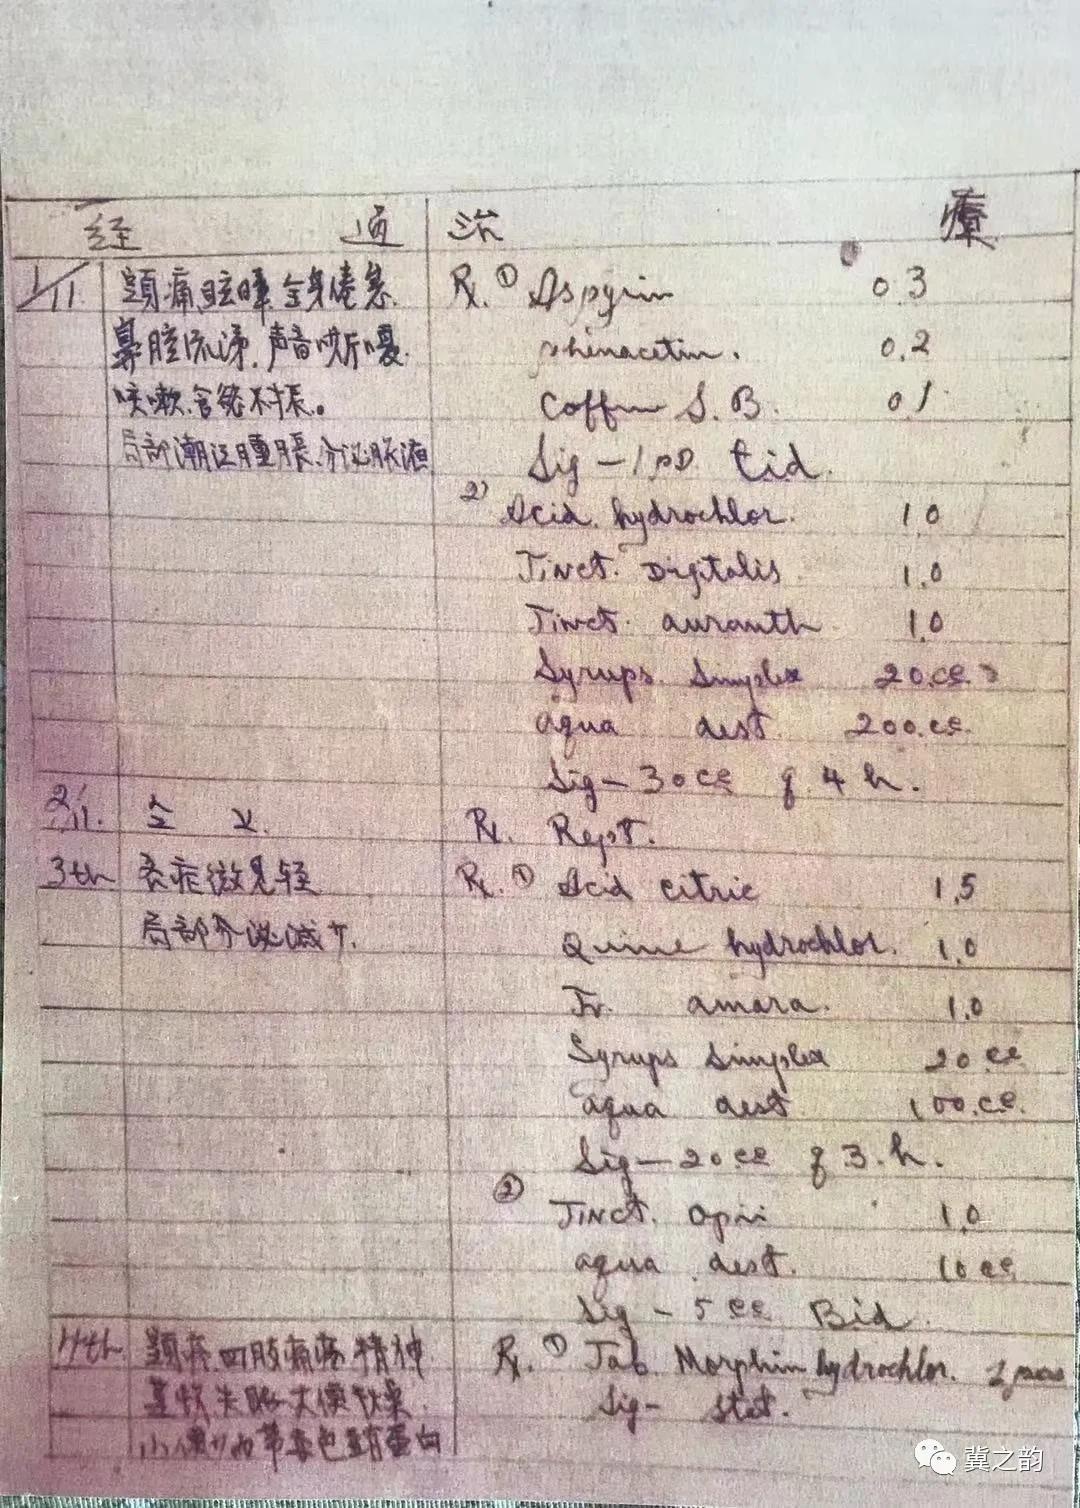 经 过 治 療
1/11 頭痛眩暈全身倦怠、 Rx. ① Aspyrin 0.3
鼻腔流涕、声音嘶嗄、 phenacetin. 0.2
咳嗽、食慾不振。 Coffin S.B. 0.1
局部潮红腫脹、分泌脓液 Sig - 1 pD. tid.
2) Acid. hydrochlor. 1.0
Tinct. Digitalis 1.0
Tinct. auranth 1.0
Syrups. Simplex 20.cc
aqua dest. 200.cc.
Sig - 30 cc q. 4 h.
2/11. 仝 上. Rx. Rept.
3th 各症微見轻 Rx. ① Acid citric 1.5
局部分泌减少. Quine hydrochlor. 1.0
Tr. amara. 1.0
Syrups Simplex 20.cc
aqua dest. 100.cc.
Sig - 20 cc q 3. h.
② Tinct. opii 1.0
aqua dest. 10 cc
Sig - 5 cc Bid.
4th 頭疼四肢痛疼精神 Rx. ① Tab. Morphin hydrochlor.
失眠大便 Sig - Stat.
小便 蛋白
冀之韵